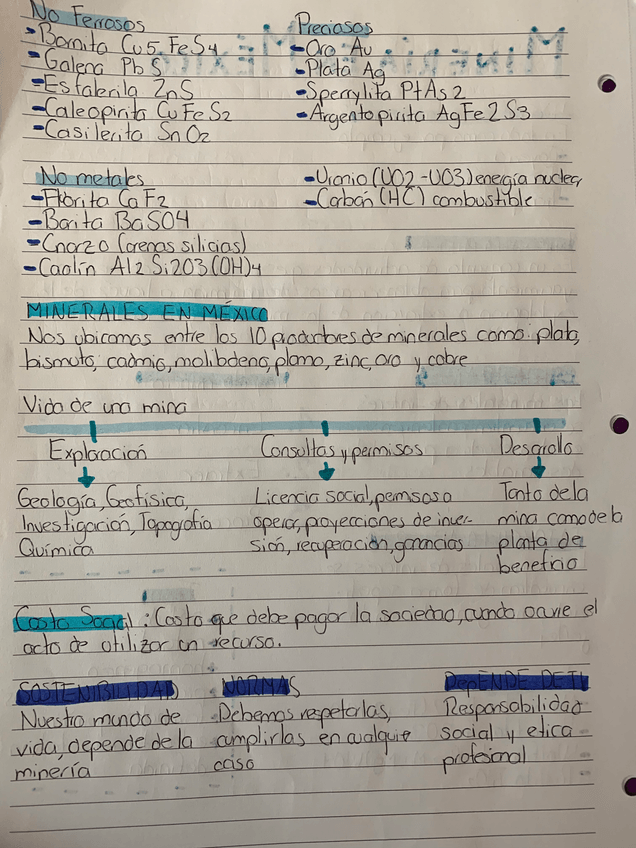 No Ferrosos
- Bornita Cu5 FeS4
- Galena PbS
- Esfalerila ZnS
- Caleopirita CuFeS2
- Casilerita SnO2
Preciosos
- Oro Au
- Plata Ag
- Sperrylita PtAs2
- Argentopirita AgFe2S3
No metales
- Florita CaF2
- Barita BaSO4
- Cnarzo (arenas silicias)
- Caolín Al2 Si2O3(OH)4
- Uranio (UO2-UO3) energía nuclear
- Carbón (HC) combustible
MINERALES EN MÉXICO
Nos ubicamos entre los 10 productores de minerales como: plata,
bismuto, cadmio, molibdeno, plomo, zinc, oro y cobre
Vida de una mina
Exploración
Geología, Geofísica,
Investigación, Topografía
Química
Consultas y permisos
Licencia social, permisos a
operar, proyecciones de inver-
sión, recuperación, ganancias
Desarollo
Tanto de la
mina como de la
planta de
beneficio
Costo Social: Costo que debe pagar la sociedad, cuando ocurre el
acto de utilizar un recurso.
SOSTENIBILIDAD
Nuestro mundo de
vida, depende de la
minería
NORMAS
Debemos respetarlas,
cumplirlas en cualquie
caso
DEpENDE DE TI
Responsabilidad
social y etica
profesional